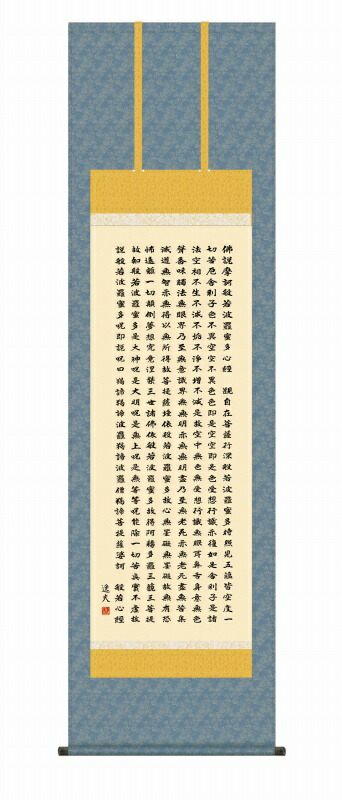 佛説摩訶般若波羅蜜多心經 觀自在菩薩行深般若波羅蜜多時照見五蘊皆空度一
切苦厄舎利子色不異空空不異色色即是空空即是色受想行識亦復如是舎利子是諸
法空相不生不滅不垢不淨不増不減是故空中無色無受想行識無眼耳鼻舌身意無色
聲香味觸法無眼界乃至無意識界無無明亦無無明盡乃至無老死亦無老死盡無苦集
滅道無智亦無得以無所得故菩提薩埵依般若波羅蜜多故心無罣礙無罣礙故無有恐
怖遠離一切顛倒夢想究竟涅槃三世諸佛依般若波羅蜜多故得阿耨多羅三藐三菩提
故知般若波羅蜜多是大神呪是大明呪是無上呪是無等等呪能除一切苦眞實不虚故
説般若波羅蜜多呪即説呪曰羯諦羯諦波羅羯諦波羅僧羯諦菩提薩婆訶 般若心經
逸夫